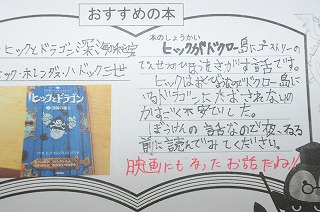 おすすめの本
ヒックとドラゴン 深海の秘宝
ヒック・ホレンダス・ハドック三世
ヒックとドラゴン
本のしょうかい
ヒックがドクロー島にゴーストリーの
ひほうをさがす話です。
ヒックはおくびょうなのにドクロー島に
いるドラゴンにたおされないの
かすごく不安でした。
ぼうけんの話なので夜、ねる
前に読んでみてください。
映画にもなったお話だね!!